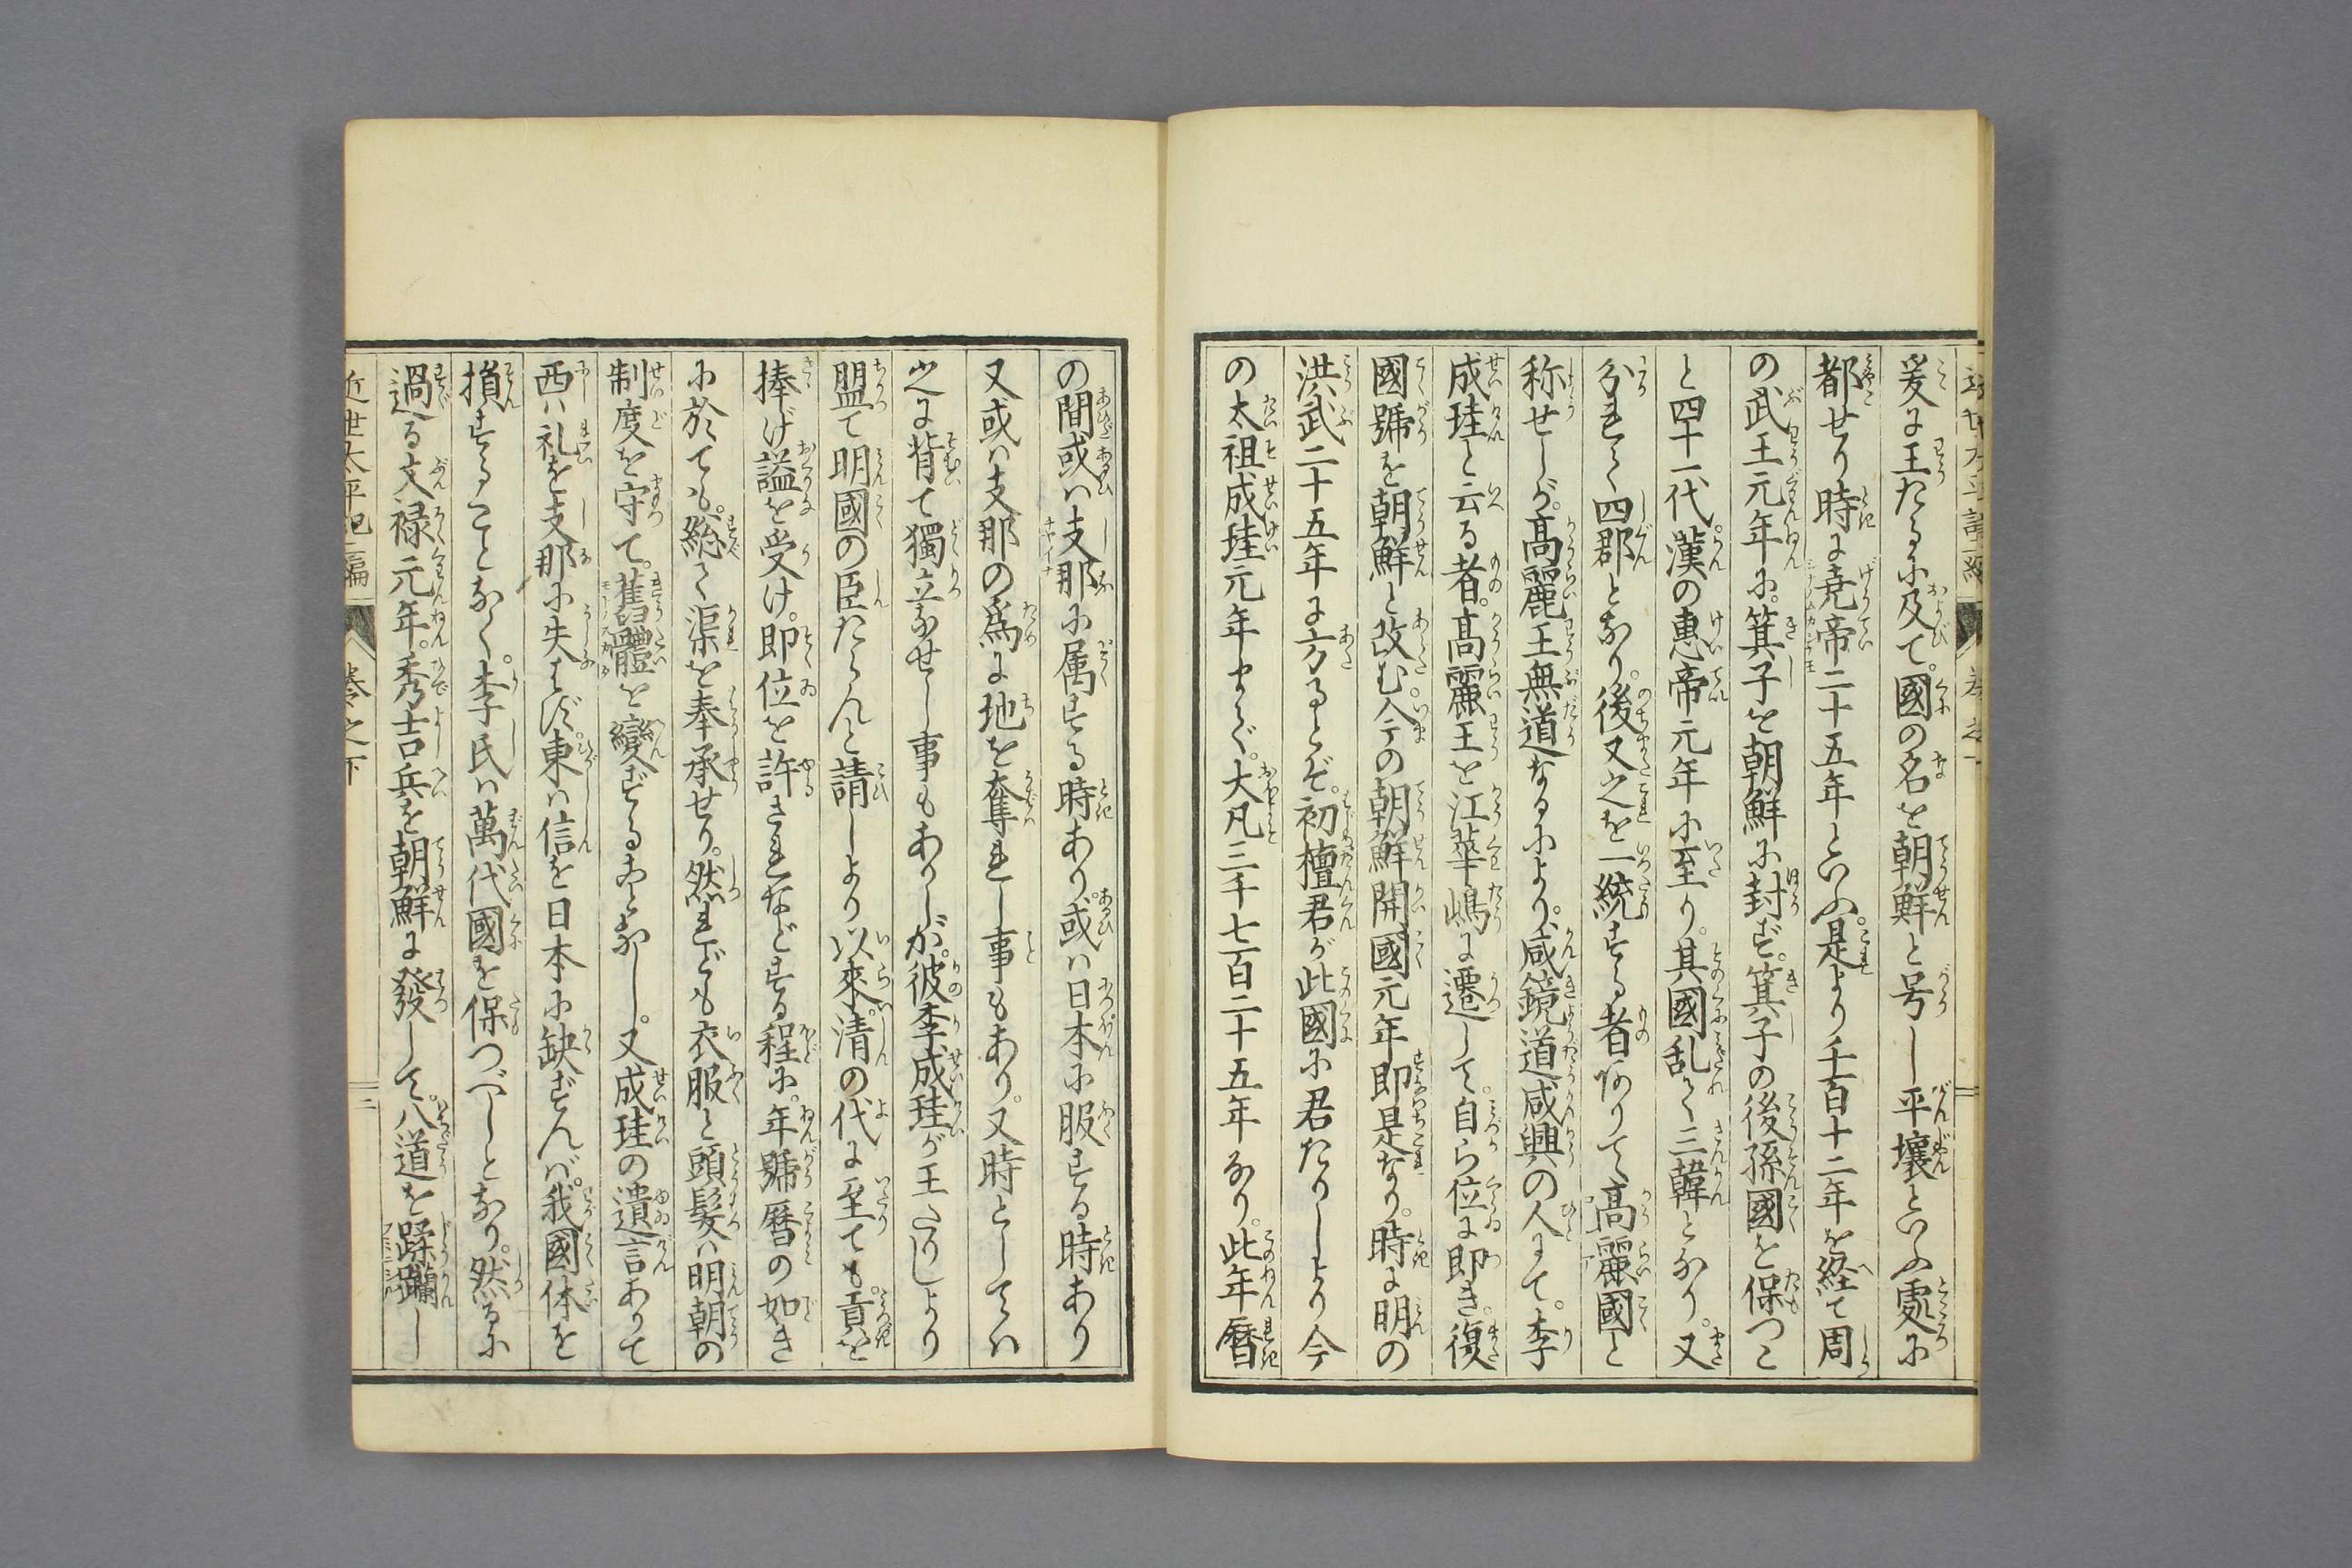 爰に王たるに及て。國の名を朝鮮と号し平壤といふ處に
都せり時に堯帝二十五年といふ。是より千百十二年を経て周
の武王元年に。箕子を朝鮮に封ず。箕子の後孫國を保つこ
と四十一代。漢の惠帝元年に至り。其國乱て三韓となり。又
分れて四郡となり。後又之を一統する者ありて。高麗國と
称せしが。高麗王無道なるにより。咸鏡道咸興の人にて。李
成珪と云る者。高麗王を江華嶋に遷して。自ら位に即き。復
國號を朝鮮と改む。今の朝鮮開國元年即是なり。時に明の
洪武二十五年に方るとぞ。初檀君が此國に君たりしより今
の太祖成珪元年まで。大凡三千七百二十五年なり。此年暦
の間或ハ支那に属する時あり。或ハ日本に服する時あり
又或ハ支那の爲に地を奪れし事もあり。又時としてハ
之に背て獨立なせし事もありしが。彼李成珪が王たりしより
盟て明國の臣たらんと請しより以來。清の代に至ても。貢を
捧げ謚を受け。即位を許さるなどする程に。年號暦の如き
に於ても。総て渠を奉承せり。然れども衣服と頭髪ハ明朝の
制度を守て。舊體を變ずる事なし。又成珪の遺言ありて
西ハ礼を支那に失はず。東ハ信を日本に缺ずんバ。我國体を
損することなく。李氏ハ萬代國を保つべしとなり。然るに
過る文禄元年。秀吉兵を朝鮮に發して。八道を蹂躙し
近世太平記二編 巻之下